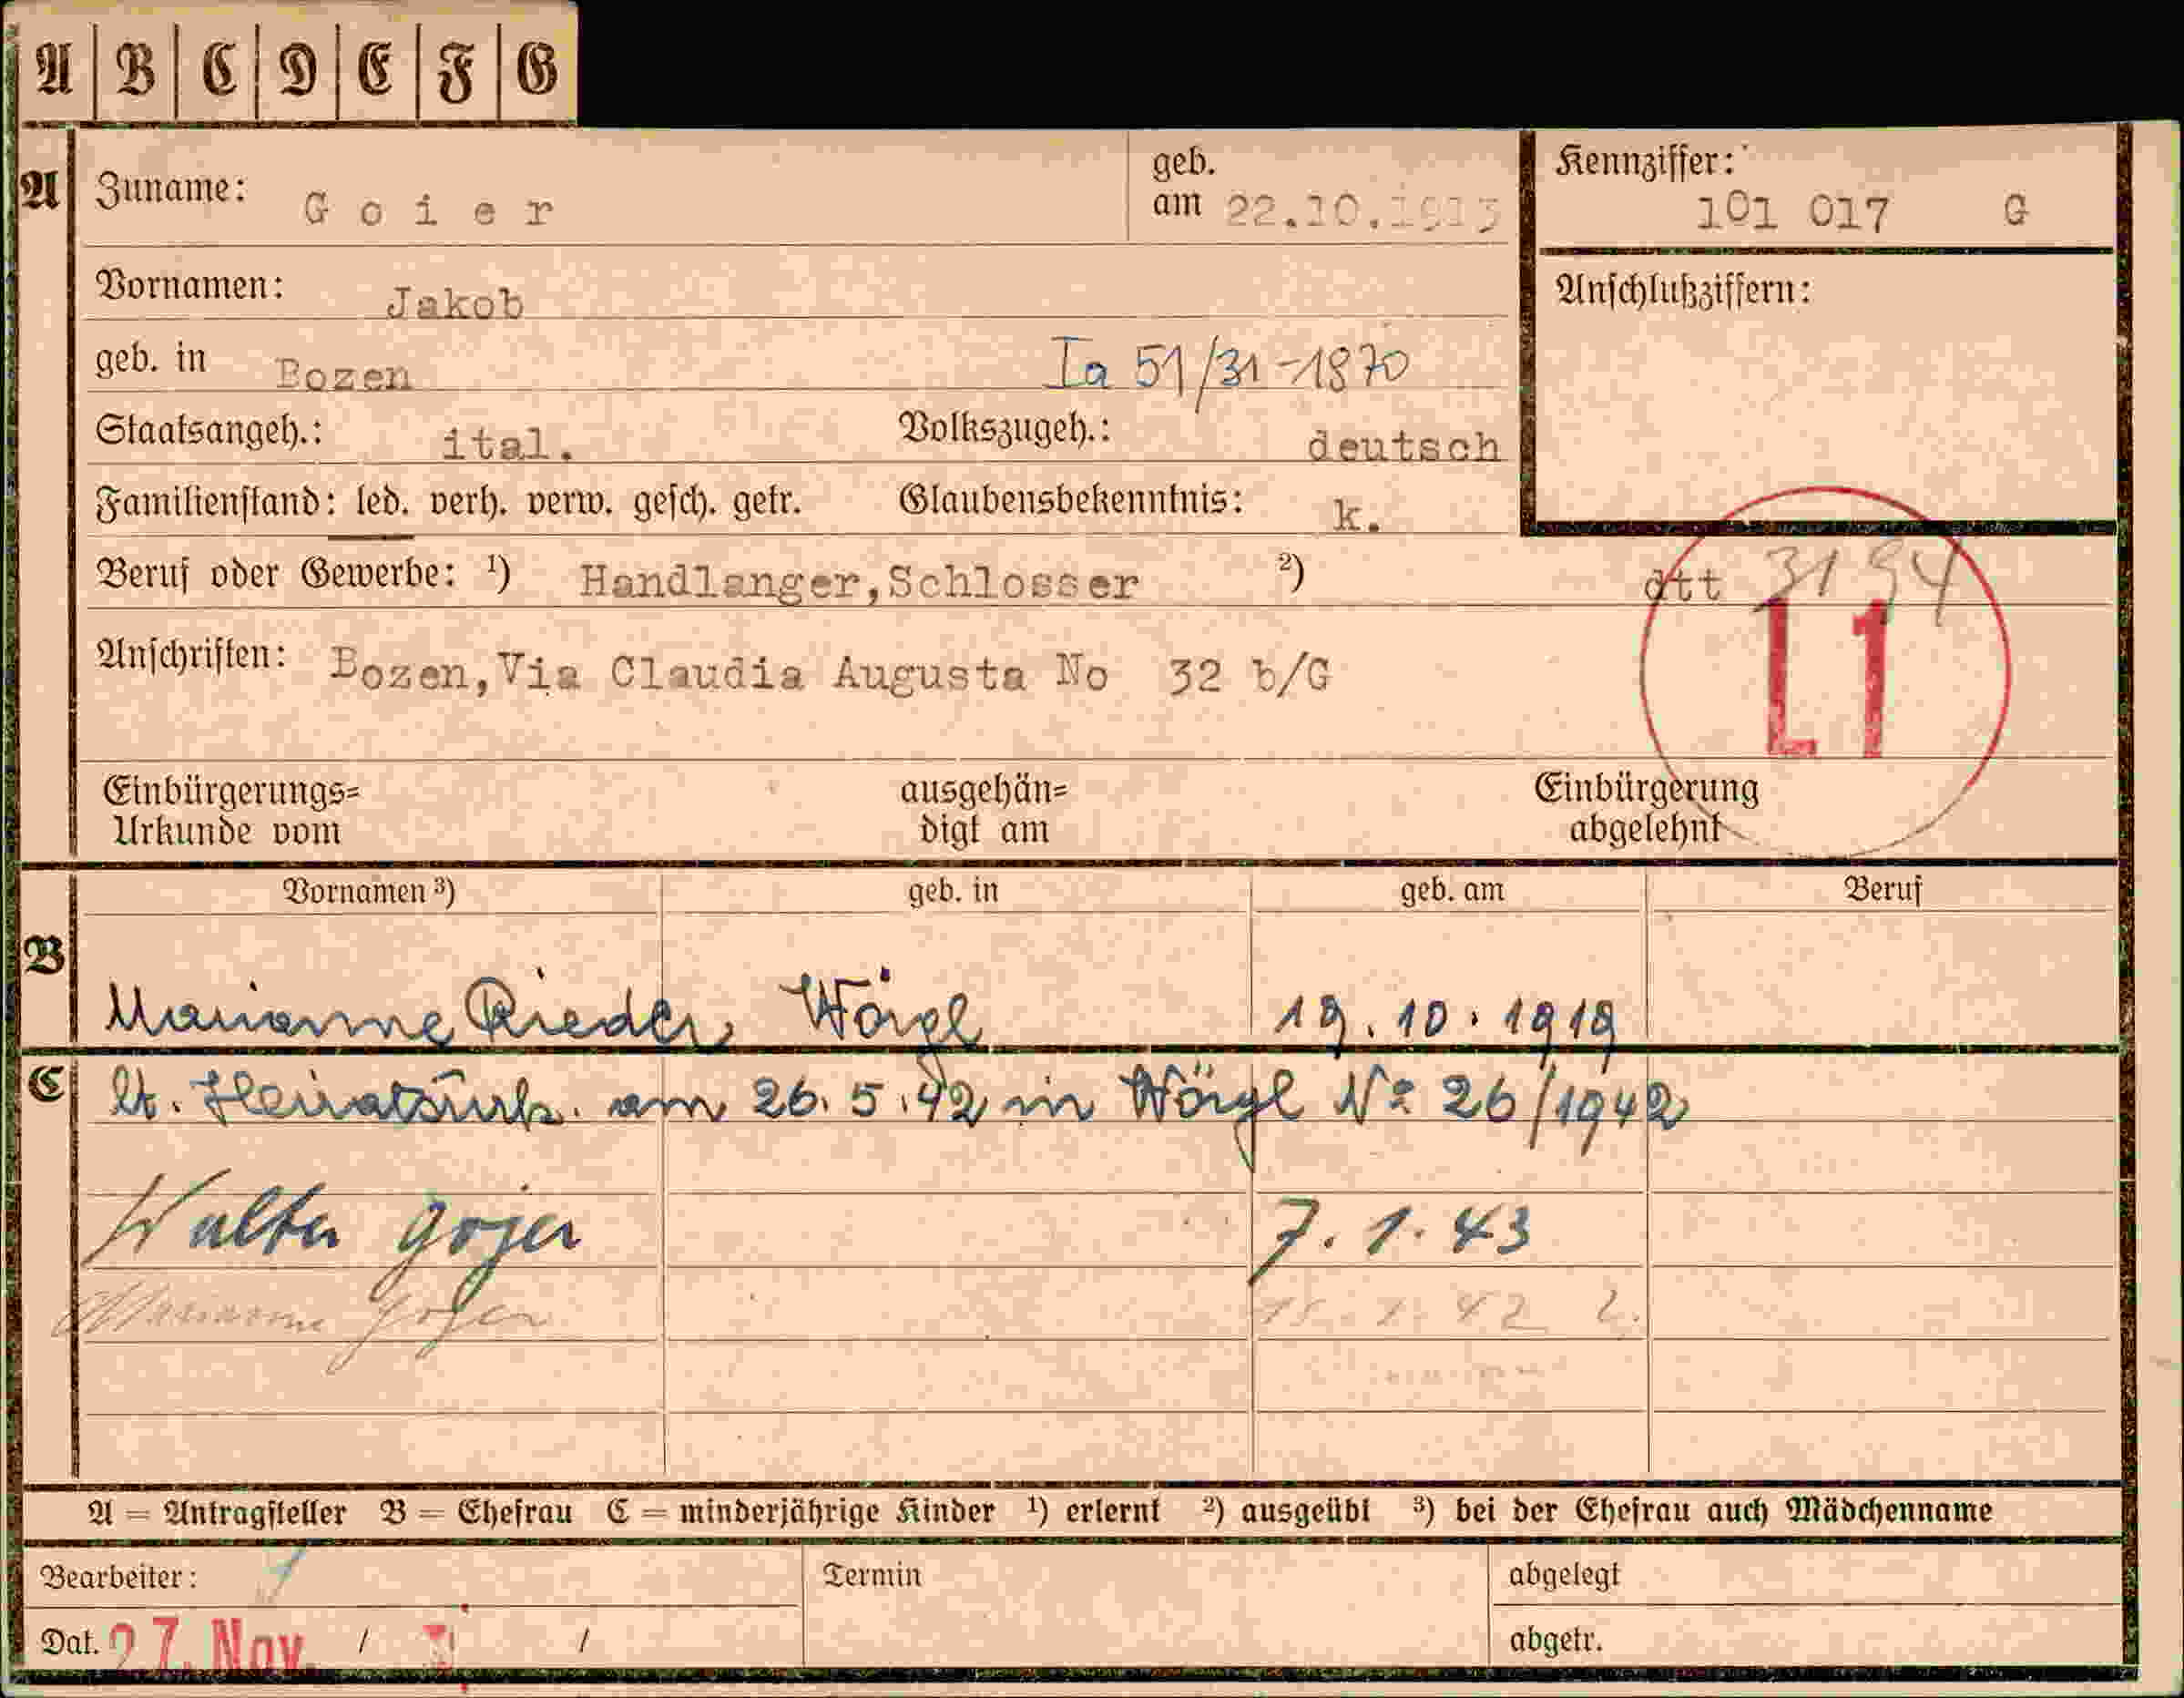 A B C D E F G
A Zuname: Goier geb. am 22.10.1913 Kennziffer: 101 017 G
Vornamen: Jakob Anschlußziffern:
geb. in Bozen Ia 51/31-1870
Staatsangeh.: ital. Volkszugeh.: deutsch
Familienstand: led. verh. verw. gesch. getr. Glaubensbekenntnis: k.
Beruf oder Gewerbe: ¹) Handlanger,Schlosser ²) dtt 3194
Anschriften: Bozen,Via Claudia Augusta No 32 b/G
L1
Einbürgerungs= ausgehän= Einbürgerung
Urkunde vom digt am abgelehnt
Vornamen ³) geb. in geb. am Beruf
B Marianne Rieder, Wörgl 19.10.1919
C lt. Heiratsurk. am 26.5.42 in Wörgl Nº 26/1942
Walter Gojer 7.1.43
Marianne Gojer
A = Antragsteller B = Ehefrau C = minderjährige Kinder ¹) erlernt ²) ausgeübt ³) bei der Ehefrau auch Mädchenname
Bearbeiter: Termin abgelegt
Dat. 27. Nov. / / abgetr.